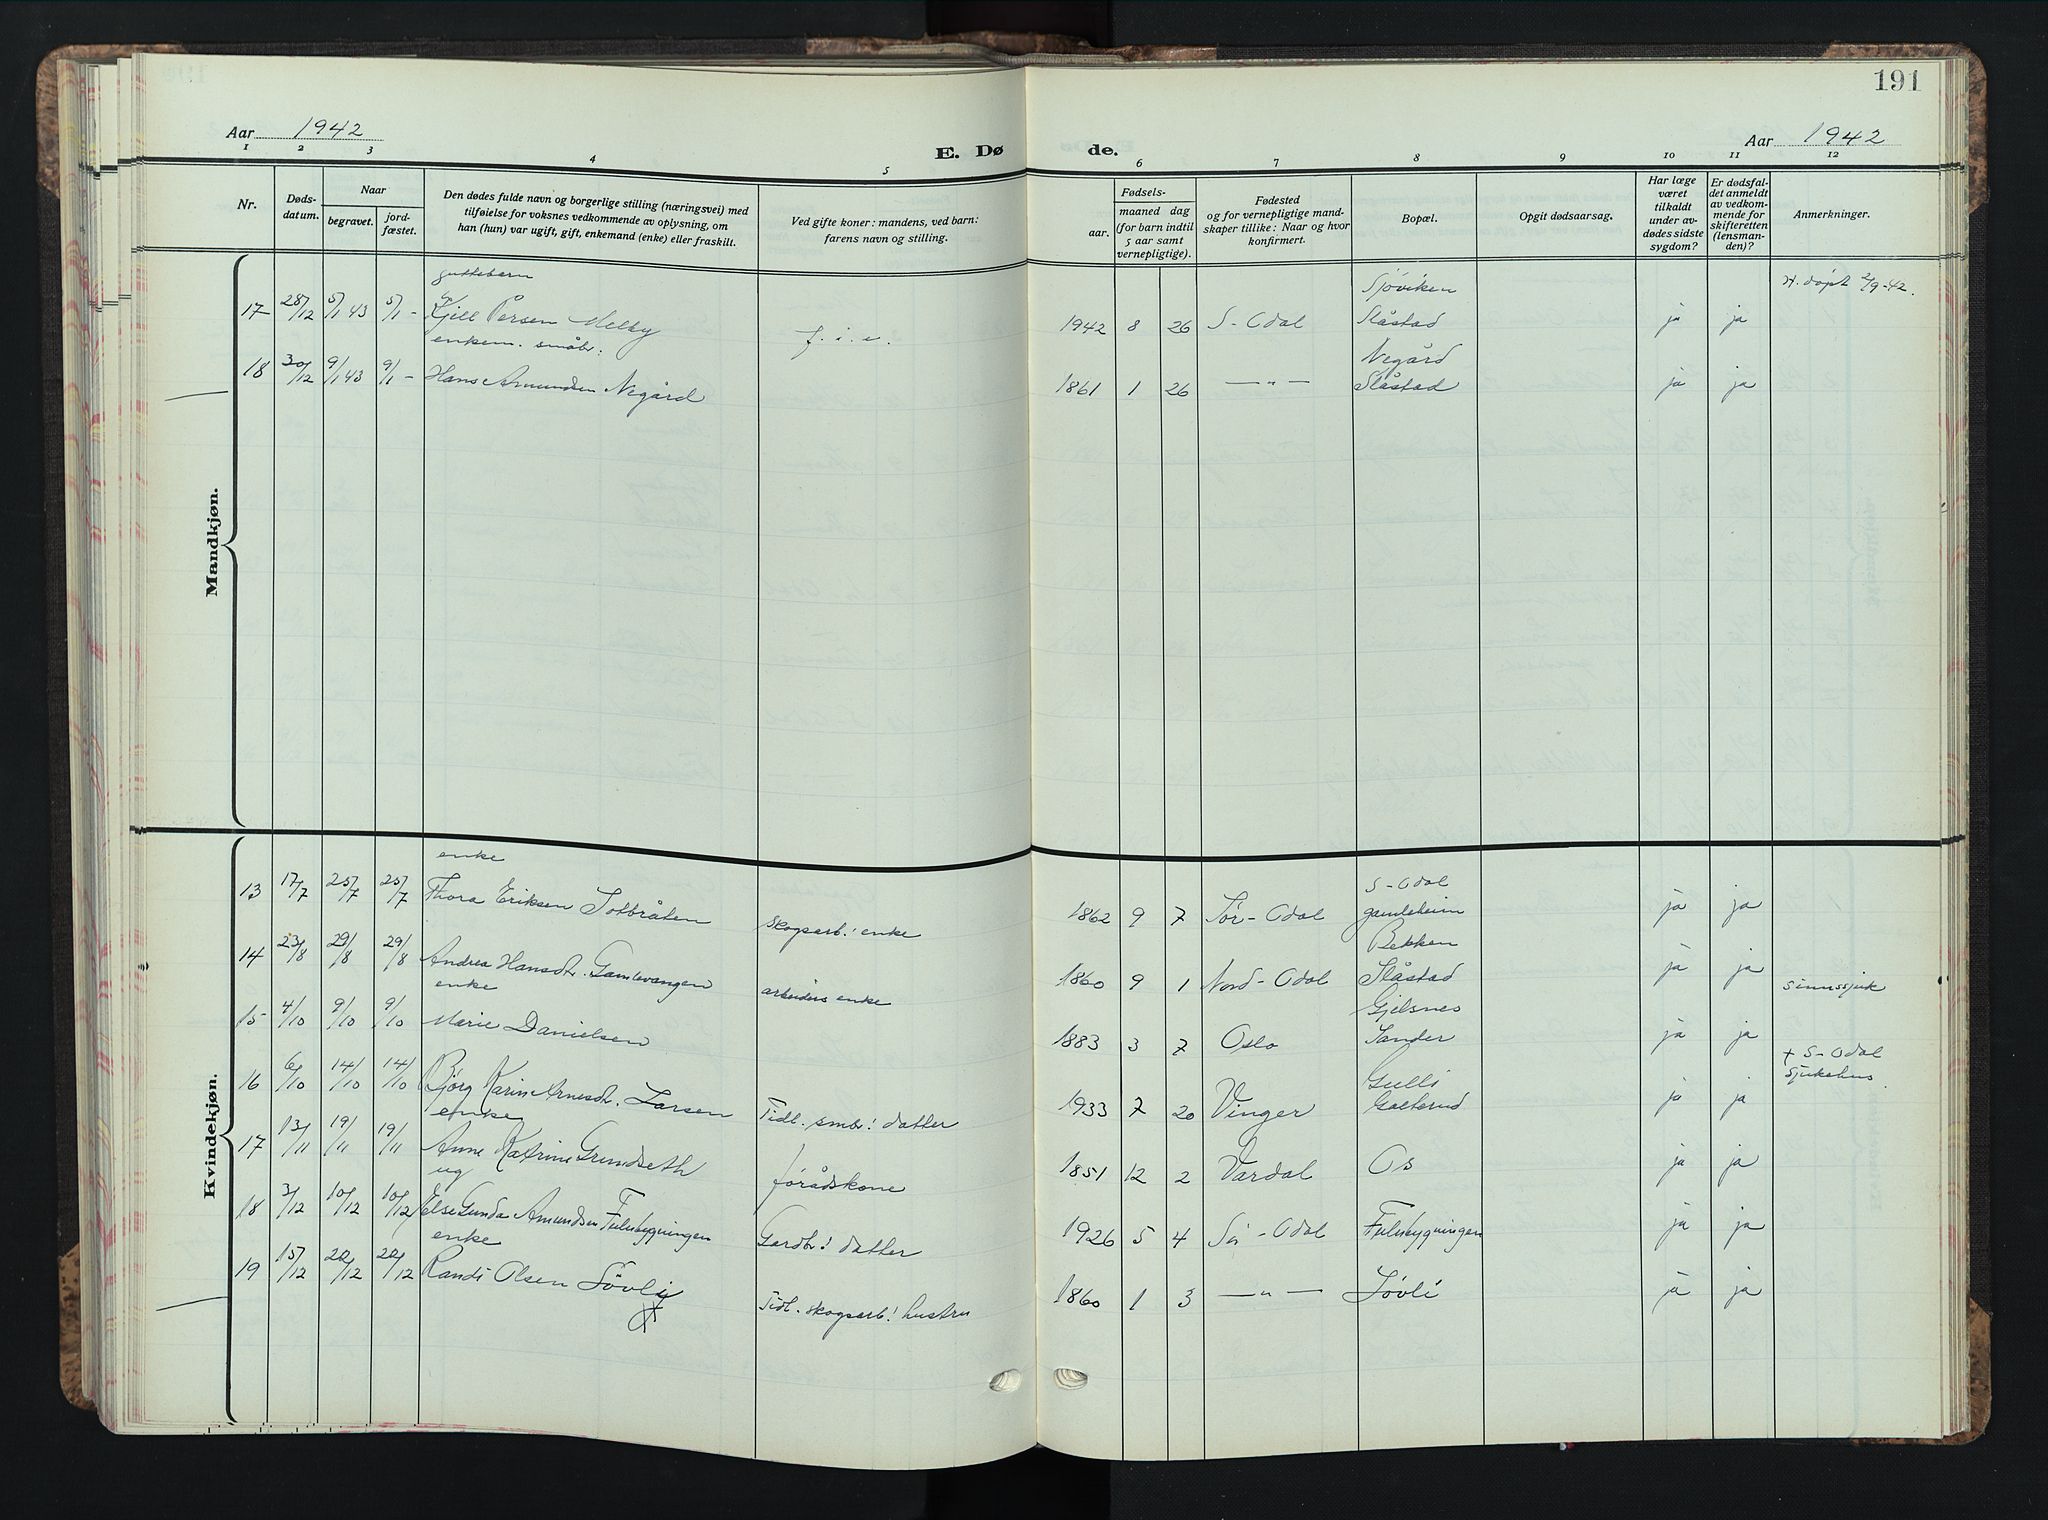 191
Aar 1942
E. Dø de.
Aar 1942
1 2 3 4 5 6 7 8 9 10 11 12
Nr.
Døds-
datum.
Naar
begravet.
jord-
fæstet.
Den dødes fulde navn og borgerlige stilling (næringsvei) med
tilføielse for voksnes vedkommende av oplysning, om
han (hun) var ugift, gift, enkemand (enke) eller fraskilt.
Ved gifte koner: mandens, ved barn:
farens navn og stilling.
Fødsels-
aar.
maaned dag
(for barn indtil
5 aar samt
vernepligtige).
Fødested
og for vernepligtige mand-
skaper tillike: Naar og hvor
konfirmert.
Bopæl.
Opgit dødsaarsag.
Har læge
været
tilkaldt
under av-
dødes sidste
sygdom?
Er dødsfal-
det anmeldt
av vedkom-
mende for
skifteretten
(lensman-
den)?
Anmerkninger.
Mandkjøn.
guttebarn Sjöviken
17 28/12 5/1 43 5/1 - Kjell Persen Melby f. i. e. 1942 8 26 S-Odal Slåstad ja ja H. döpt 2/9-42.
enkem. småbr: Negård
18 30/12 9/1 43 9/1 - Hans Amundsen Negård 1861 1 26 —"— Slåstad ja ja
Kvindekjøn.
enke S-Odal
13 17/7 25/7 25/7 Thora Eriksen Totbråten skogsarb.! enke 1862 9 7 Sør-Odal gamleheim ja ja
Bekken
14 23/8 29/8 29/8 Andrea Hansdtr. Gamlevangen arbeiders enke 1860 9 1 Nord-Odal Slåstad ja ja sinnssjuk
enke Gjelsnes
15 4/10 9/10 9/10 Marie Danielsen 1883 3 7 Oslo Sander ja ja + S-Odal
sjukehus.
Gulli
16 6/10 14/10 14/10 Björg Karin Arnesdtr. Larsen Tidl. smbr! datter 1933 7 20 Vinger Galterud ja ja
enke
17 13/11 19/11 19/11 Anne Katrine Grundseth förådskone 1851 12 2 Vardal Os ja ja
ug
18 3/12 10/12 10/12 Else Gunda Amundsen Fulubygningen Gardbr! datter 1926 5 4 Sör-Odal Fulubygningen ja ja
enke
19 15/12 20/12 20/12 Randi Olsen Lövli Tidl. skogsarb! hustru 1860 1 3 —"— Lövli ja ja